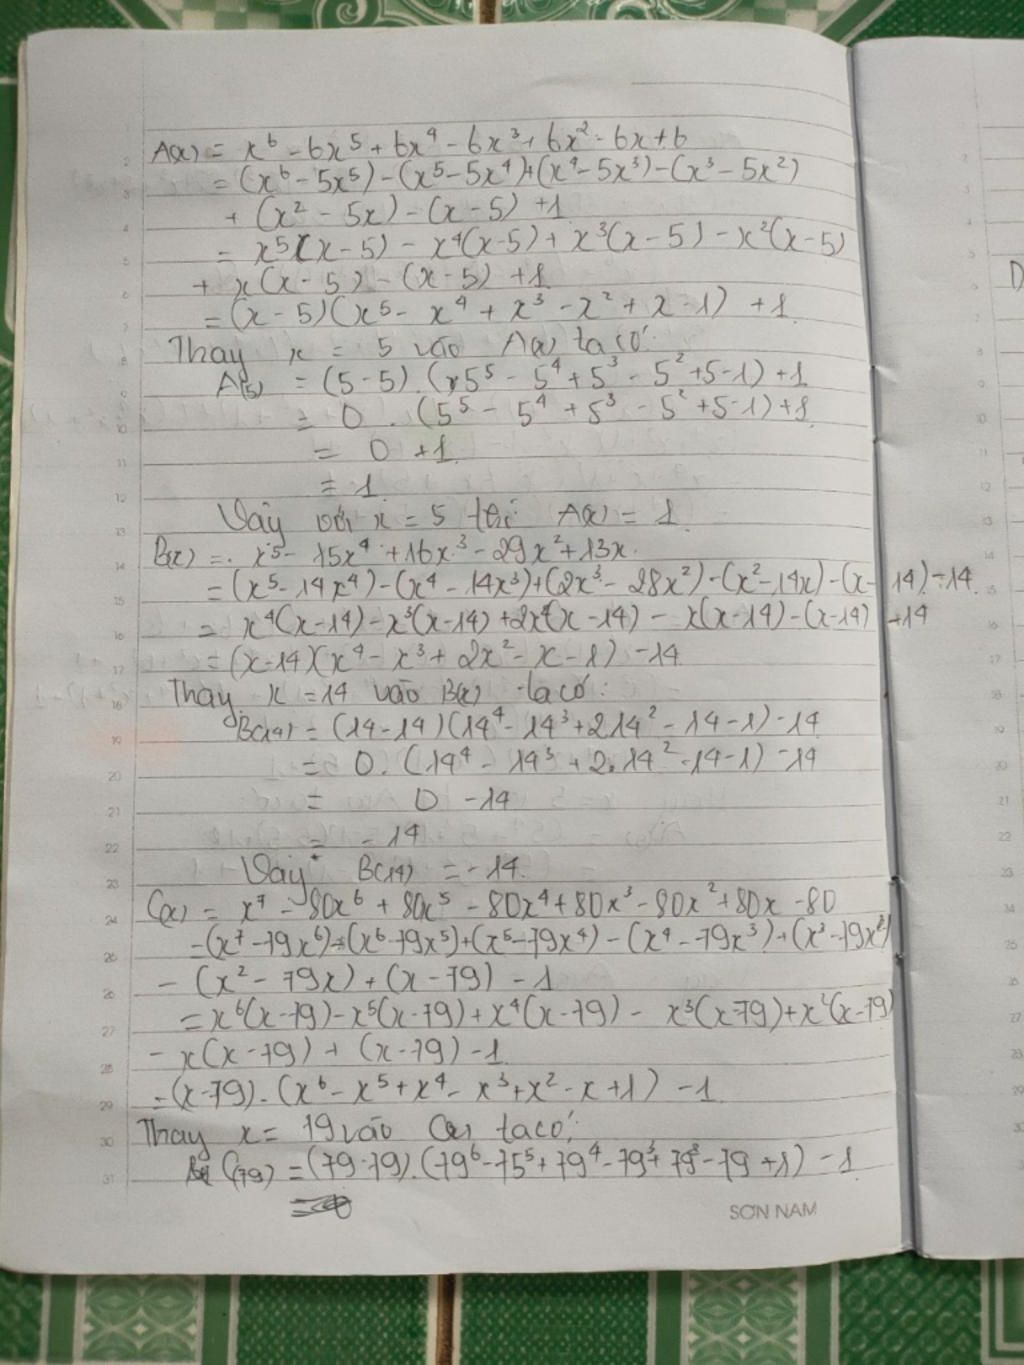 A(x) = x⁶ - 6x⁵ + 6x⁴ - 6x³ + 6x² - 6x + 6
= (x⁶ - 5x⁵) - (x⁵ - 5x⁴) + (x⁴ - 5x³) - (x³ - 5x²)
+ (x² - 5x) - (x - 5) + 1
= x⁵(x - 5) - x⁴(x - 5) + x³(x - 5) - x²(x - 5)
+ x(x - 5) - (x - 5) + 1
= (x - 5)(x⁵ - x⁴ + x³ - x² + x - 1) + 1
Thay x = 5 vào A(x) ta có:
A(5) = (5 - 5).(5⁵ - 5⁴ + 5³ - 5² + 5 - 1) + 1
= 0 . (5⁵ - 5⁴ + 5³ - 5² + 5 - 1) + 1
= 0 + 1
= 1
Vậy với x = 5 thì A(x) = 1
B(x) = x⁵ - 15x⁴ + 16x³ - 29x² + 13x
= (x⁵ - 14x⁴) - (x⁴ - 14x³) + (2x³ - 28x²) - (x² - 14x) - (x - 14) - 14
= x⁴(x - 14) - x³(x - 14) + 2x²(x - 14) - x(x - 14) - (x - 14) + 14
= (x - 14)(x⁴ - x³ + 2x² - x - 1) - 14
Thay x = 14 vào B(x) ta có:
B(14) = (14 - 14)(14⁴ - 14³ + 2.14² - 14 - 1) - 14
= 0. (14⁴ - 14³ + 2.14² - 14 - 1) - 14
= 0 - 14
= - 14
Vậy B(14) = - 14
C(x) = x⁷ - 80x⁶ + 80x⁵ - 80x⁴ + 80x³ - 80x² + 80x - 80
= (x⁷ - 79x⁶) - (x⁶ - 79x⁵) + (x⁵ - 79x⁴) - (x⁴ - 79x³) + (x³ - 79x²)
- (x² - 79x) + (x - 79) - 1
= x⁶(x - 79) - x⁵(x - 79) + x⁴(x - 79) - x³(x - 79) + x²(x - 79)
- x(x - 79) + (x - 79) - 1
= (x - 79). (x⁶ - x⁵ + x⁴ - x³ + x² - x + 1) - 1
Thay x = 79 vào C(x) ta có:
C(79) = (79 - 79).(79⁶ - 75⁵ + 79⁴ - 79³ + 79² - 79 + 1) - 1
SƠN NAM